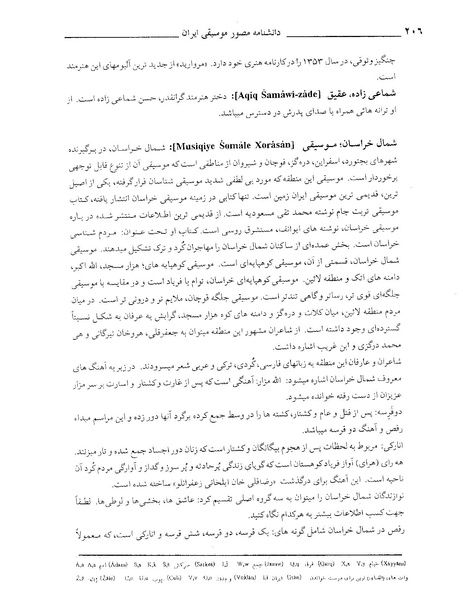 ۲۰۶ دانشنامه مصور موسیقی ایران
چنگیز وثوقی، در سال ۱۳۵۳ را در کارنامه هنری خود دارد. «مروارید» از جدید ترین آلبومهای این هنرمند
است.
شماعی زاده، عقیق [Aqiq Šamâwi-zâde]: دختر هنرمند گرانقدر، حسن شماعی زاده است. از
او ترانه هائی همراه با صدای پدرش در دسترس میباشد.
شمال خراسان؛ موسیقی [Musiqiye Šomâle Xorâsân]: شمال خراسان، در برگیرنده
شهرهای بجنورد، اسفراین، دره‌گز، قوچان و شیروان از مناطقی است که موسیقی آن از تنوع قابل توجهی
برخوردار است. موسیقی این منطقه که مورد بی لطفی شدید موسیقی شناسان قرار گرفته، یکی از اصیل
ترین، قدیمی ترین موسیقی ایران زمین است. تنها کتابی در زمینه موسیقی خراسان انتشار یافته، کتاب
موسیقی تربت جام نوشته محمد تقی مسعودیه است. از قدیمی ترین اطلاعات منتشر شده در باره
موسیقی خراسان، نوشته های ایوانف، مستشرق روسی است. کتاب او تحت عنوان: مردم شناسی
خراسان است. بخش عمده‌ای از ساکنان شمال خراسان را مهاجران کُرد و ترک تشکیل میدهند. موسیقی
شمال خراسان، قسمتی از آن، موسیقی کوهپایه‌ای است. موسیقی کوهپایه های؛ هزار مسجد، الله اکبر،
دامنه های اتک و منطقه لائین. موسیقی کوهپایه‌ای خراسان، توام با فریاد است و در مقایسه با موسیقی
جلگه‌ای قوی تر، رساتر و گاهی تندتر است. موسیقی جلگه قوچان، ملایم تر و درونی تر است. در میان
مردم منطقه لائین، میان کلات و دره‌گز و دامنه های کوه هزار مسجد، گرایش به عرفان به شکل نسبتاً
گسترده‌ای وجود داشته است. از شاعران مشهور این منطقه میتوان به جعفرقلی، هروخان تیرگانی و هی
محمد درگزی و ابن غریب اشاره داشت.
شاعران و عارفان این منطقه به زبانهای فارسی، کُردی، ترکی و عربی شعر میسرودند. در زیر به آهنگ های
معروف شمال خراسان اشاره میشود: الله مزار: آهنگی است که پس از غارت و کشتار و اسارت بر سر مزار
عزیزان از دست رفته خوانده میشود.
دوقُرسه: پس از قتل و عام و کشتار، کشته ها را در وسط جمع کرده برگرد آنها دور زده و این مراسم مبداء
رقص و آهنگ دو قرسه میباشد.
انارکی: مربوط به لحظات پس از هجوم بیگانگان و کشتار است که زنان دور اجساد جمع شده و تار میزنند.
هه رای (هرای) آواز فریاد کوهستان است که گویای زندگی پُرحادثه و پُر سوز و گداز و آوارگی مردم کُرد آن
ناحیه است. این آهنگ برای درگذشت «رضاقلی خان ایلخانی زعفرانلو» ساخته شده است.
نوازندگان شمال خراسان را میتوان به سه گروه اصلی تقسیم کرد: عاشق ها، بخشی‌ها و لوطی‌ها. لطفاً
جهت کسب اطلاعات بیشتر به هر کدام نگاه کنید.
رقص در شمال خراسان شامل گونه های: یک قرسه، دو قرسه، شش قرسه و انارکی است، که معمولاً